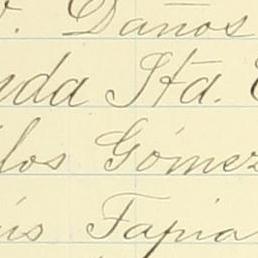 V. Daños
nda Sta. C
los Gómez
uis Tapia